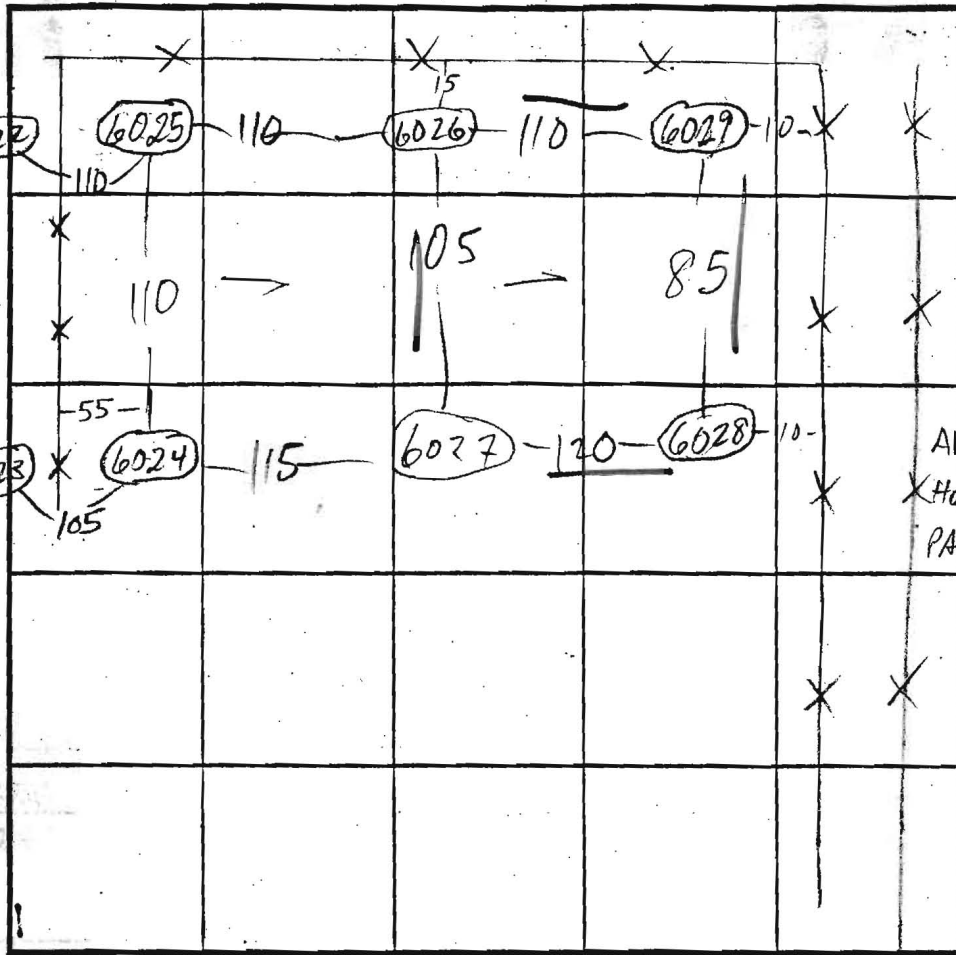 15
6025 110 6026 110 6029 10
110
105
110 85
55
6024 115 6027 120 6028 10
105
PA